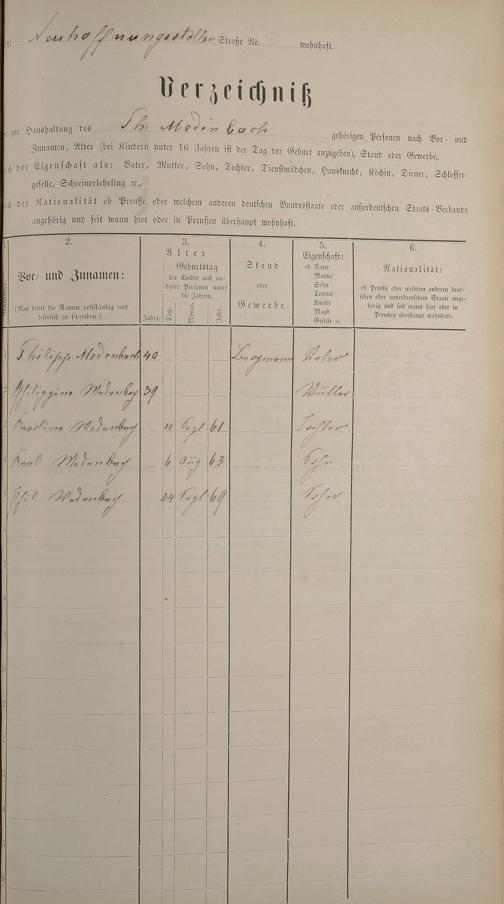 Neuhoffnungsstollen Straße No. wohnhaft.
Verzeichniß
zur Haushaltung des Ph. Medenbach gehörigen Personen nach Vor- und
Zunamen, Alter (bei Kindern unter 16 Jahren ist der Tag der Geburt anzugeben), Stand oder Gewerbe,
der Eigenschaft als: Vater, Mutter, Sohn, Tochter, Dienstmädchen, Hausknecht, Köchin, Diener, Schlosser-
geselle, Schreinerlehrling ꝛc.,
der Nationalität ob Preuße oder welchem anderen deutschen Bundesstaate oder außerdeutschen Staats-Verbande
angehörig und seit wann hier oder in Preußen überhaupt wohnhaft.
2. 3. 4. 5. 6.
Vor- und Zunamen:
(Man bittet die Namen vollständig und
leserlich zu schreiben.)
Alter
Geburtstag
der Kinder und an-
derer Personen unter
16 Jahren.
Jahre. Tag. Monat. Jahr.
Stand
oder
Gewerbe.
Eigenschaft:
ob Vater
Mutter
Sohn
Tochter
Knecht
Magd
Geselle ꝛc.
Nationalität:
ob Preuße oder welchem anderen deut-
schen oder außerdeutschen Staate ange-
hörig und seit wann hier oder in
Preußen überhaupt wohnhaft.
Philipp Medenbach 40 Bergmann Vater
Philippine Medenbach 39 Mutter
Karoline Medenbach 11 Sept 61 Tochter
Karl Medenbach 6 Aug 63 Sohn
Phil. Medenbach 24 Sept 69 Sohn